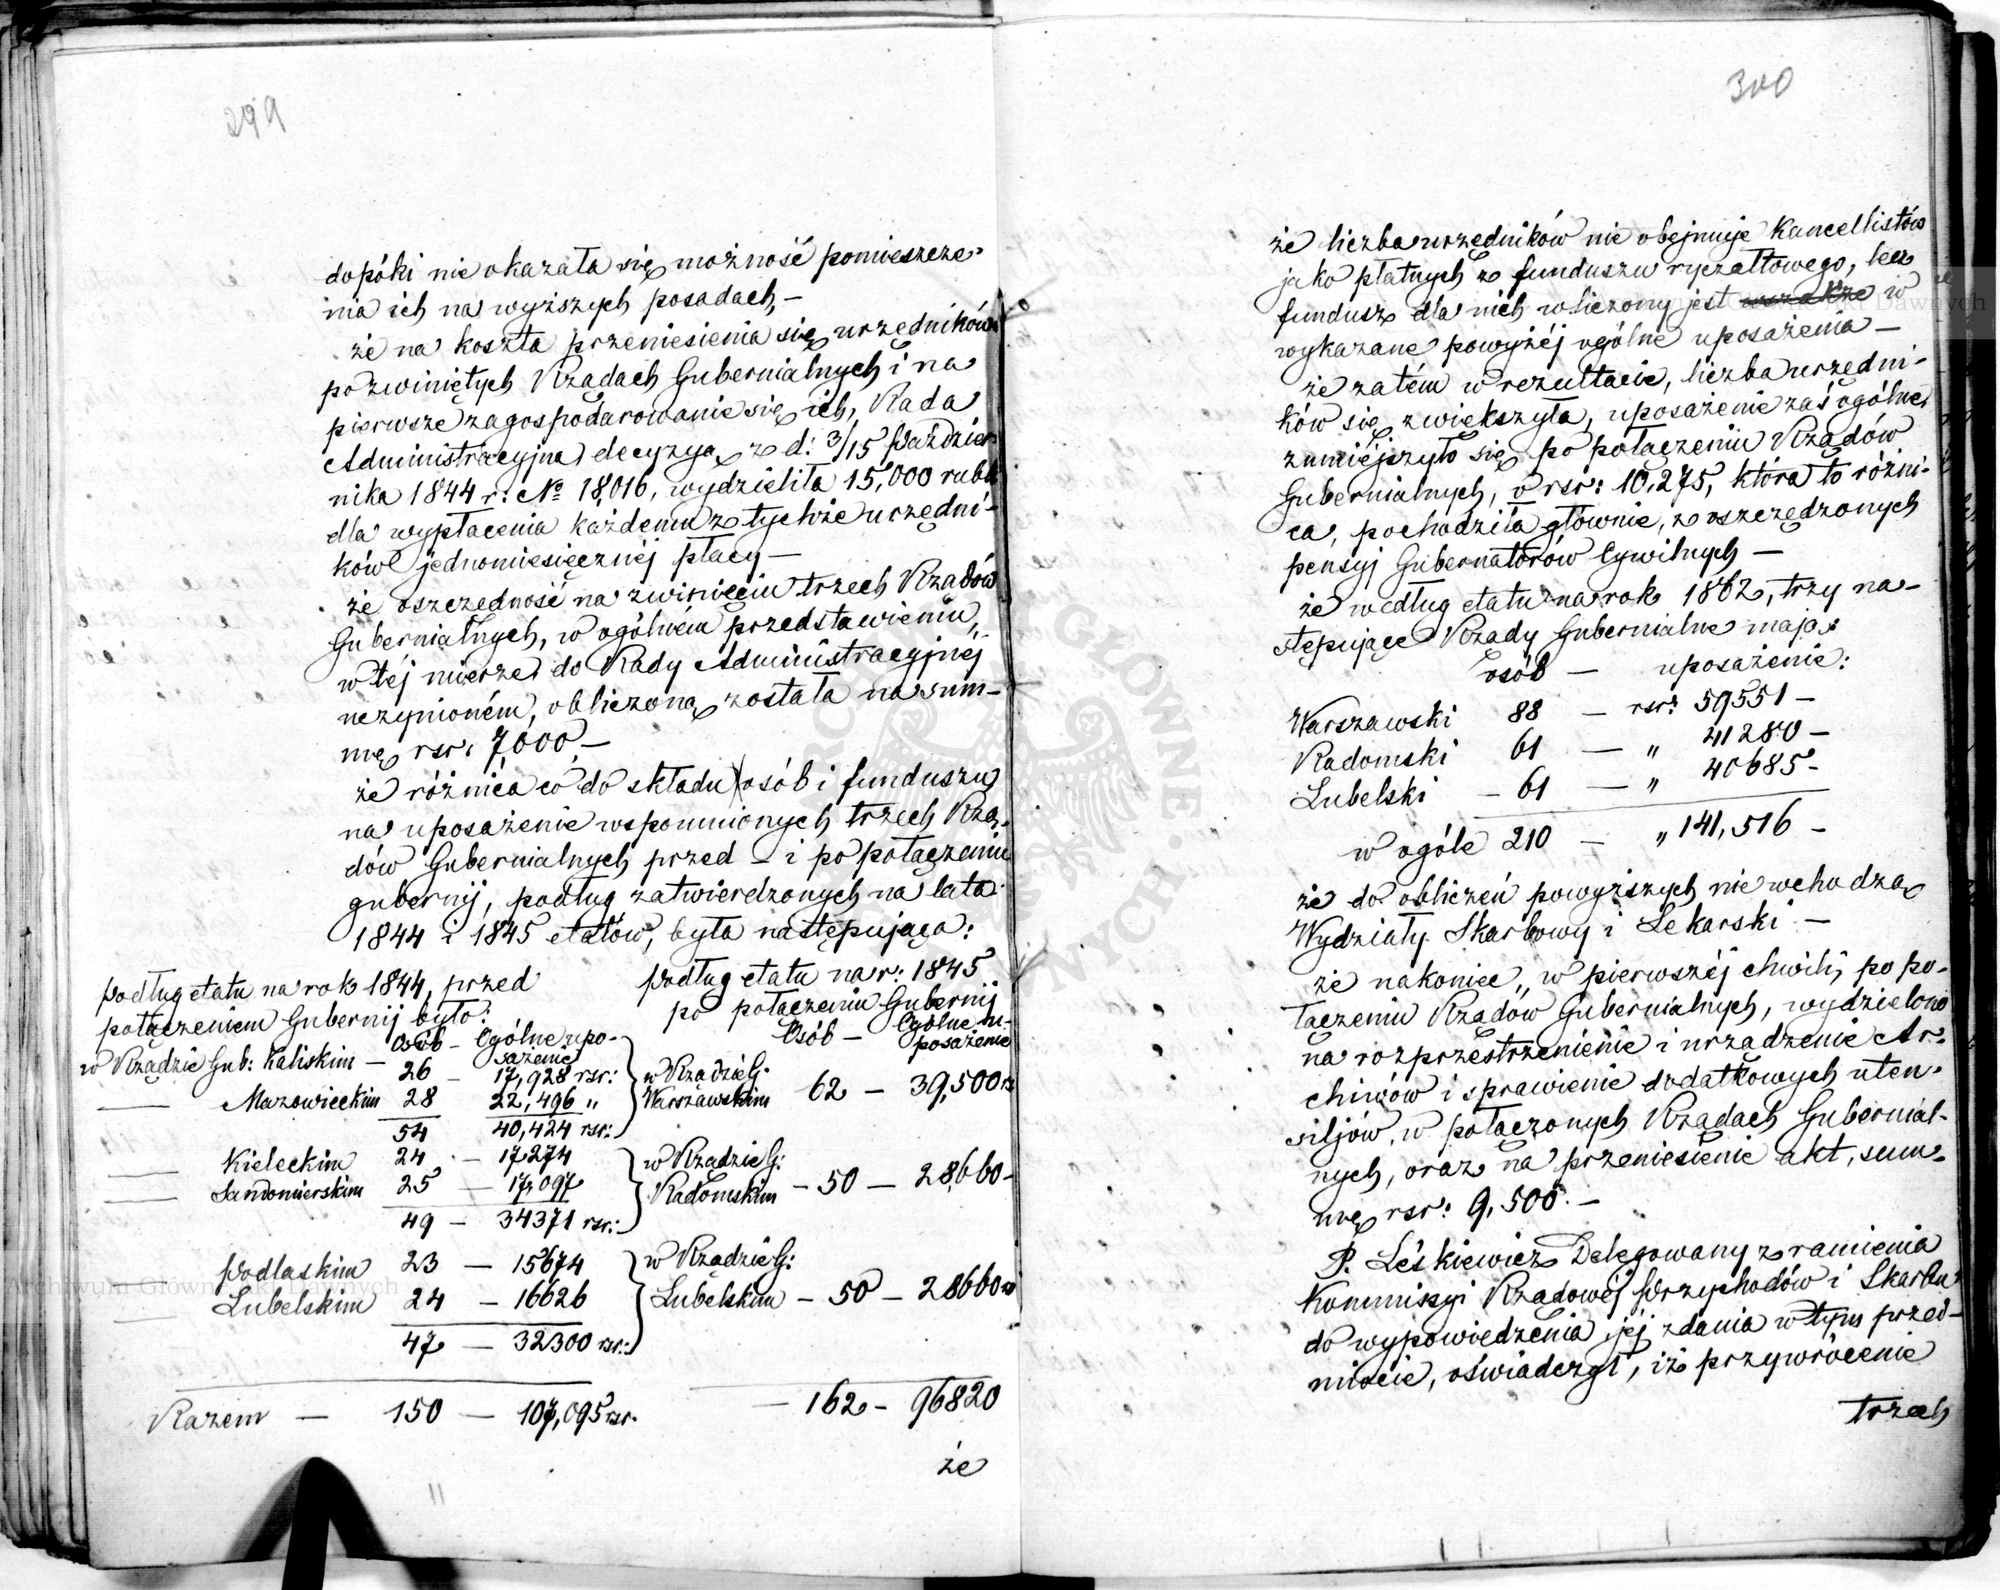 299
dopóki nie okazała się możność pomieszcze-
nia ich na wyższych posadach, —
że na koszta przeniesienia się urzędników
po zwiniętych Rządach Gubernialnych i na
pierwsze zagospodarowanie się ich, Rada
Administracyjna decyzyą z d: 3/15 Paździer-
nika 1844 r: No 18,016, wydzieliła 15,000 rubli
dla wypłacenia każdemu z tychże urzędni-
ków jednomiesięcznéj płacy —
że oszczędność na zwinięciu trzech Rządów
Gubernialnych, w ogólném przedstawieniu,
w téj mierze do Rady Administracyjnéj
uczynioném, obliczoną została na sum-
mę rsr. 7000 —
że różnica co do składu osób i funduszu
na uposażenie wspomnionych trzech Rzą-
dów Gubernialnych przed — i po połączeniu
gubernij, podług zatwierdzonych na lata
1844 i 1845 etatów, była następująca:
Podług etatu na rok 1844, przed
połączeniem Gubernij było:
Osób — Ogólne upo-
sażenie
w Rządzie Gub: Kaliskim — 26 — 17,928 rsr:
— Mazowieckim 28 22,496 "
54 40,424 rsr:
— Kieleckim 24 — 17274
— Sandomierskim 25 — 17,097
49 — 34371 rsr:
— Podlaskim 23 — 15674
— Lubelskim 24 — 16626
47 — 32300 rsr:
Razem — 150 — 107,095 rsr.
Podług etatu na r: 1845
po połączeniu Gubernij
Osób — Ogólne u-
posażenie
w Rządzie G.
Warszawskim 62 — 39,500 rs
w Rządzie G:
Radomskim — 50 — 28660 —
w Rządzie G:
Lubelskim — 50 — 28660 rs
— 162 — 96820
że
300
że liczba urzędników nie obejmuje Kancellistów
jako płatnych z funduszu ryczałtowego, lecz
fundusz dla nich wliczony jest wszakże w
wykazane powyżéj ogólne uposażenia —
że zatém w rezultacie, liczba urzędni-
ków się zwiększyła, uposażenie zaś ogólne
zmniejszyło się po połączeniu Rządów
Gubernialnych, o rsr: 10,275, która to różni-
ca, pochodziła głównie, z oszczędzonych
pensyj Gubernatorów Cywilnych —
że według etatu na rok 1862, trzy na-
stępujące Rządy Gubernialne mają:
osób — uposażenie:
Warszawski 88 — rsr: 59551 —
Radomski 61 — " 41280 —
Lubelski — 61 — " 40685 —
w ogóle 210 — " 141,516 —
że do obliczeń powyższych nie wchodzą
Wydziały Skarbowy i Lekarski —
że nakoniec, w pierwszéj chwili, po po-
łączeniu Rządów Gubernialnych, wydzielono
na rozprzestrzenienie i urządzenie Ar-
chiwów i sprawienie dodatkowych uten-
siljów, w połączonych Rządach Gubernial-
nych, oraz na przeniesienie akt, sum-
mę rsr: 9,500. —
P. Leśkiewicz Delegowany z ramienia
Kommisyi Rządowéj Przychodów i Skarbu
do wypowiedzenia jéj zdania w tym przed-
miocie, oświadczył, iż przywrócenie
trzech
Archiwum Główne Akt Dawnych